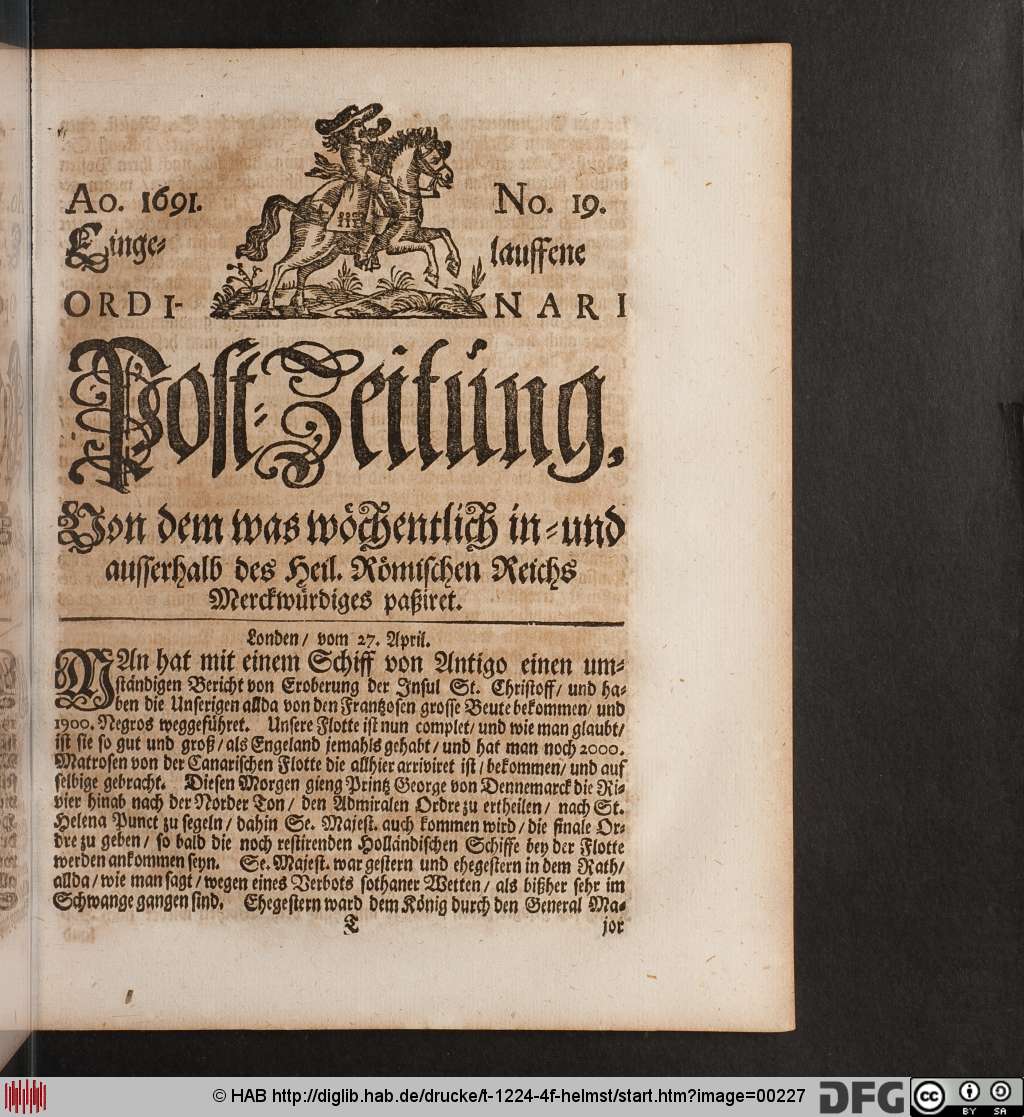 Ao. 1691. No. 19.
Einge- lauffene
ORDI- NARI
Post-Zeitung,
Von dem was wöchentlich in- und
ausserhalb des Heil. Römischen Reichs
Merckwürdiges paßiret.
Londen/ vom 27. April.
MAn hat mit einem Schiff von Antigo einen um-
ständigen Bericht von Eroberung der Insul St. Christoff/ und ha-
ben die Unserigen allda von den Frantzosen grosse Beute bekommen/ und
1900. Negros weggeführet. Unsere Flotte ist nun complet/ und wie man glaubt/
ist sie so gut und groß/ als Engeland jemahls gehabt/ und hat man noch 2000.
Matrosen von der Canarischen Flotte die allhier arriviret ist/ bekommen/ und auf
selbige gebracht. Diesen Morgen gieng Printz George von Dennemarck die Ri-
vier hinab nach der Norder Ton/ den Admiralen Ordre zu ertheilen/ nach St.
Helena Punct zu segeln/ dahin Se. Majest. auch kommen wird/ die finale Or-
dre zu geben/ so bald die noch restirenden Holländischen Schiffe bey der Flotte
werden ankommen seyn. Se. Majest. war gestern und ehegestern in dem Rath/
allda/ wie man sagt/ wegen eines Verbots sothaner Wetten/ als bißher sehr im
Schwange gangen sind. Ehegestern ward dem König durch den General Ma-
T jor
© HAB http://diglib.hab.de/drucke/t-1224-4f-helmst/start.htm?image=00227
DFG
cc BY SA